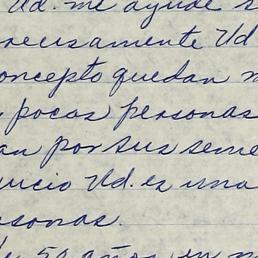 Ud. me ayude s
recisamente Ud
oncepto quedan m
pocas personas
an por sus seme
uicio Ud. es una
sonas.
de 50 años, en m